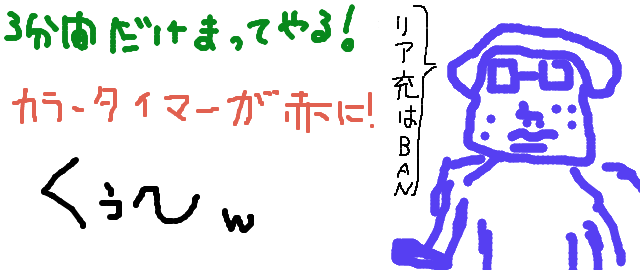 3分間だけまってやる!
カラータイマーが赤に!
くぅ～w
リア充はBAN